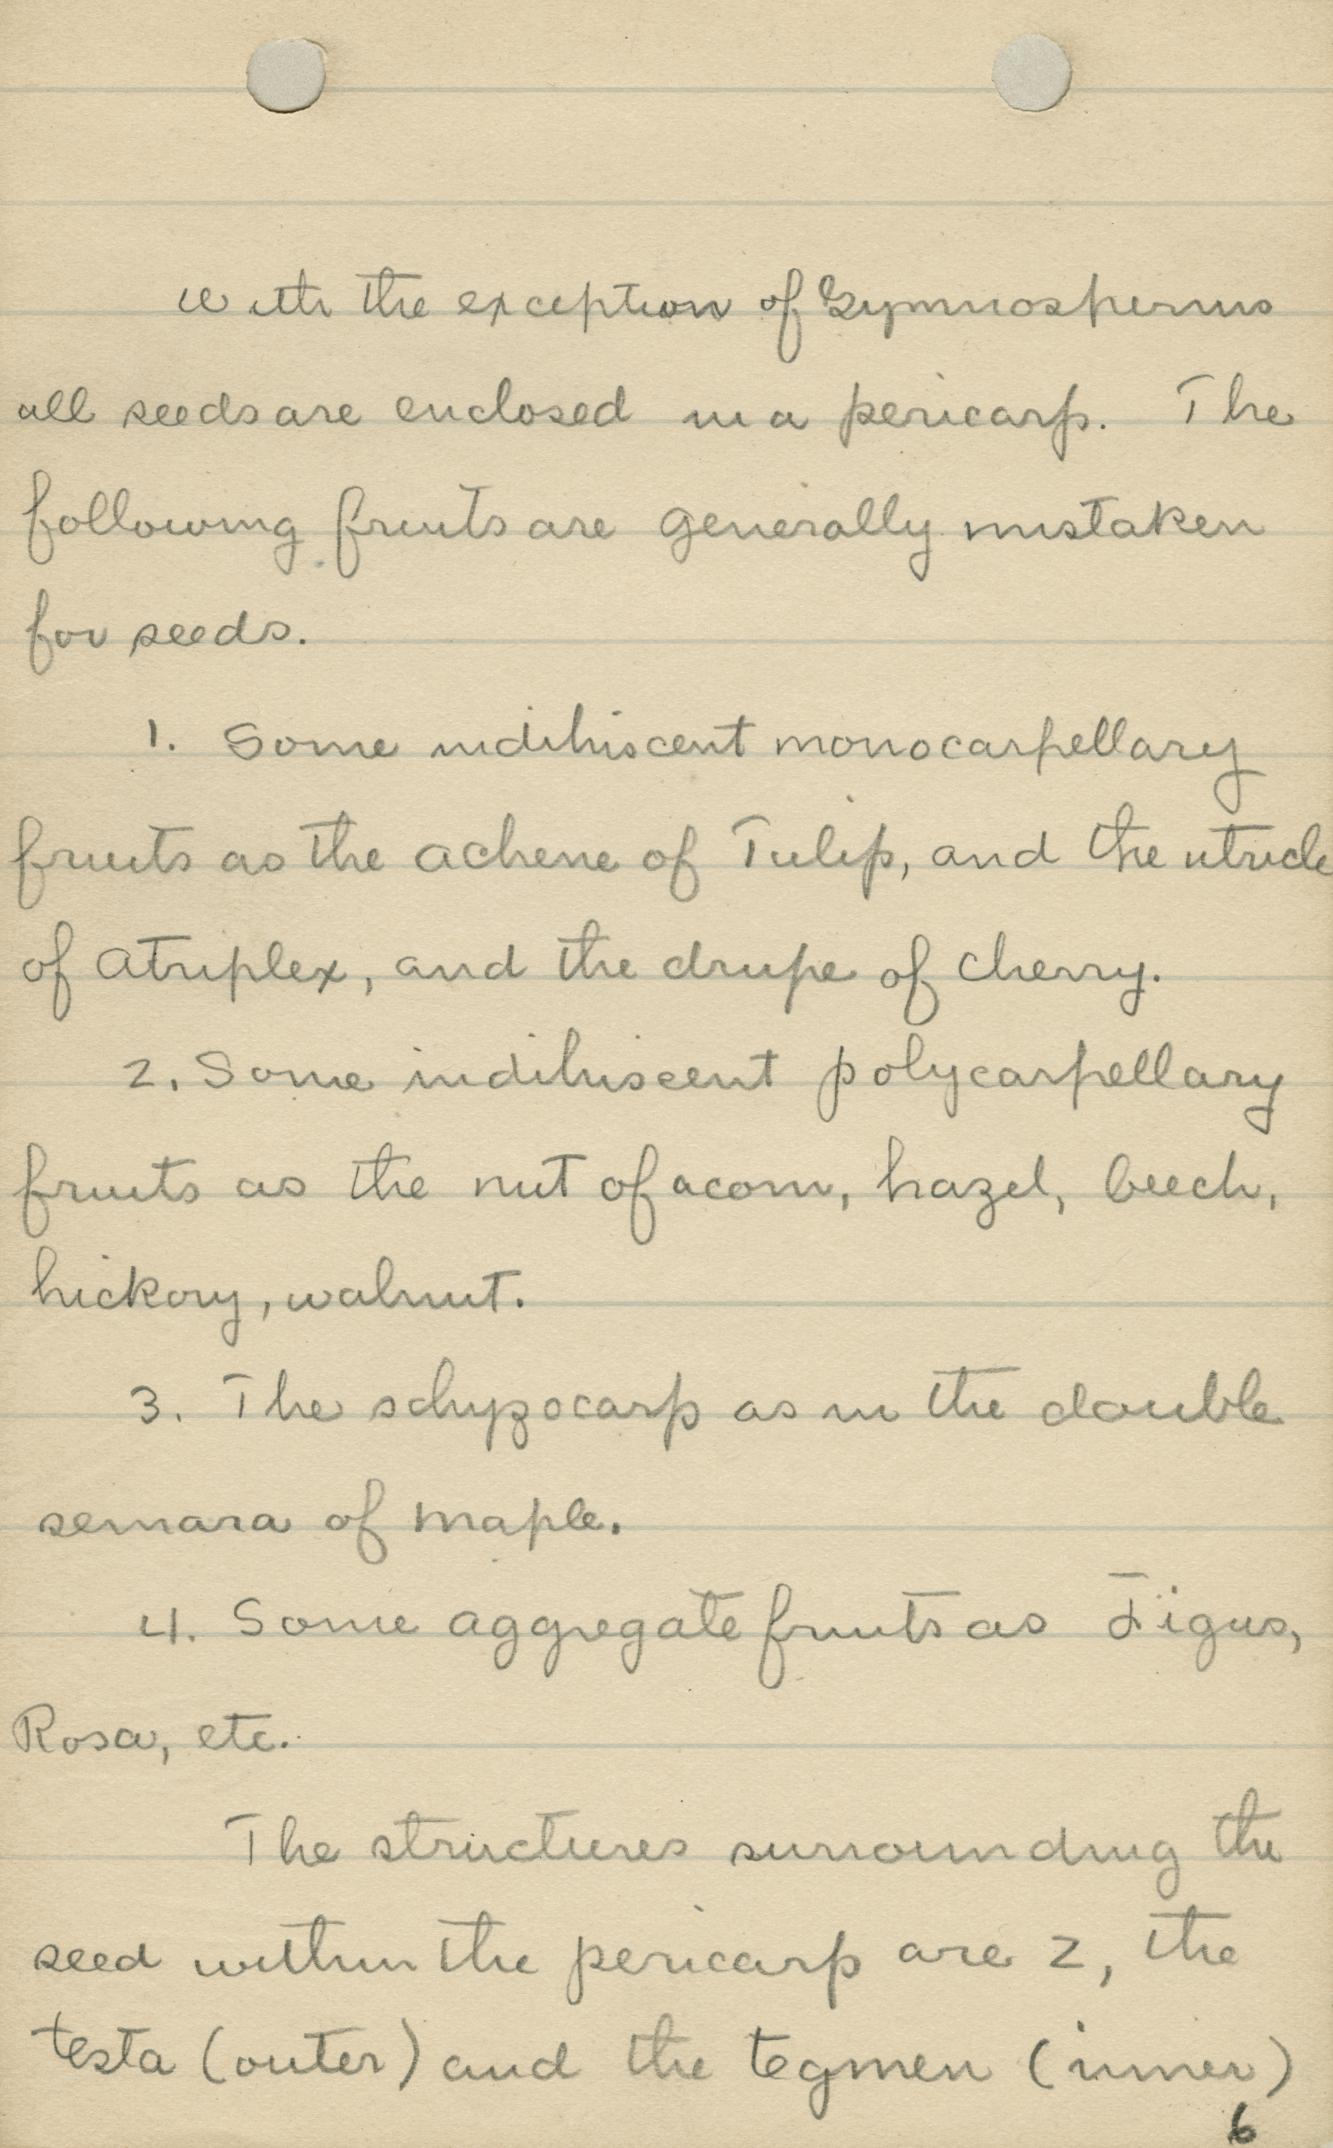 with the exception of Gymnosperms
all seeds are enclosed in a pericarp. The
following fruits are generally mistaken
for seeds.
1. Some indihiscent monocarpellary
fruits as the achene of Tulip, and the utricle
of atriplex, and the drupe of cherry.
2. Some indihiscent polycarpellary
fruits as the nut of acorn, hazel, beech,
hickory, walnut.
3. The schyzocarp as in the double
semara of maple.
4. Some aggregate fruits as Figus,
Rosa, etc.
The structures surrounding the
seed within the pericarp are 2, the
testa (outer) and the tegmen (inner)
6